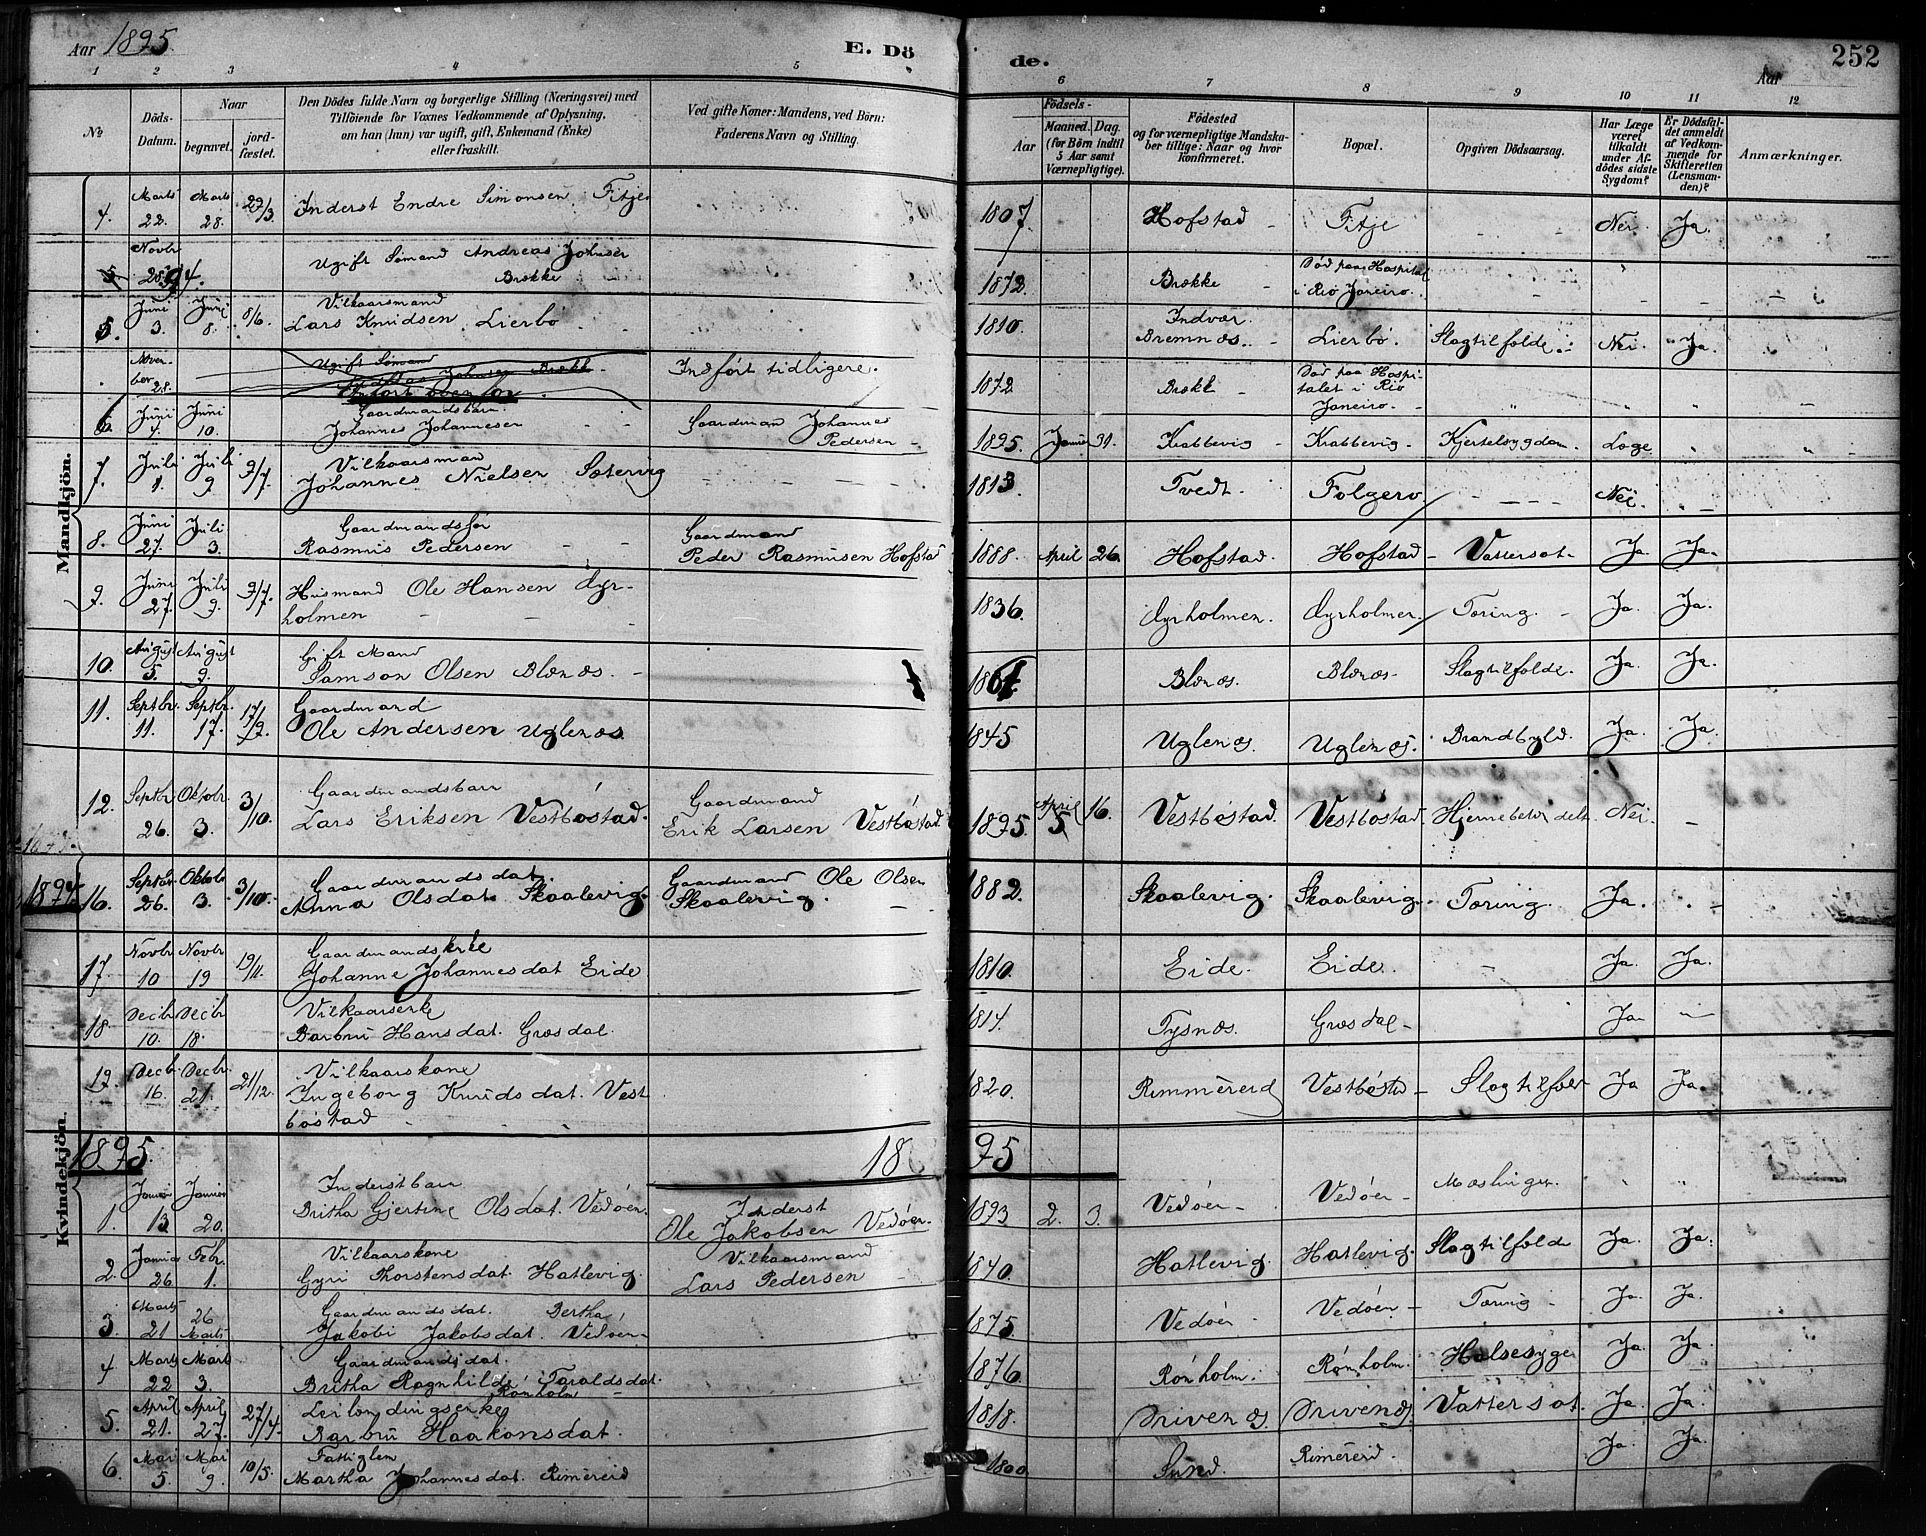 Aar 1895. E. Döde. Aar 252
1 2 3 4 5 6 7 8 9 10 11 12
No
Döds-Datum.
Naar
begravet.
jordfæstet.
Den Dödes fulde Navn og borgerlige Stilling (Næringsvei) med
Tilföiende for Voxnes Vedkommende af Oplysning,
om han (hun) var ugift, gift, Enkemand (Enke)
eller fraskilt.
Ved gifte Koner: Mandens, ved Börn:
Faderens Navn og Stilling.
Födsels-
Aar
Maaned. Dag.
(for Börn indtil
5 Aar samt
Værnepligtige).
Födested
og for værnepligtige Mandska-
ber tillige: Naar og hvor
konfirmeret.
Bopæl.
Opgiven Dödsaarsag.
Har Læge
været
tilkaldt
under Af-
dödes sidste
Sygdom?
Er Dödsfal-
det anmeldt
af Vedkom-
mende for
Skifteretten
(Lensman-
den)?
Anmærkninger.
Mandkjön.
4. Marts 22. Marts 28. 29/3 Inderst Endre Simonsen Fitje 1807 Hofstad Fitje Nei. Ja.
5 Novbr 28/94. Ugift Sømand Andreas Johnsen
Brække 1872 Brække Død paa Hospital
i Rio Janeiro.
5. Juni 3. Juni 8. 8/6. Vilkaarsmand
Lars Knudsen Lierbø 1810. Indvær
Bremnæs. Lierbø. Slagtilfælde. Nei Ja.
November 28. Ugift Sømand
Brækk Indført tidligere. 1872 Brækk Død paa Hospi-
talet i Rio
Janeiro.
Indført ovenfor
6. Juni 4. Juni 10. Gaardmandsbarn.
Johannes Johannesen Gaardmand Johannes
Pedersen 1895. Januar 31. Krabbevig Krabbevig Kjertelsygdom Læge
7. Juli 1. Juli 9 9/7. Vilkaarsman
Johannes Nielsen Sætervig 1813. Tvedt. Folgerø Nei.
8. Juni 27. Juli 3. Gaardmandssøn
Rasmus Pedersen Gaardmand
Peder Rasmusen Hofstad 1888. April 26. Hofstad. Hofstad Vattersot. Ja Ja.
9. Juni 27. Juli 9. 9/7. Husmand Ole Hansen Dyr-
holmen 1836. Dyrholmen. Dyrholmen Tæring. Ja Ja.
10. August 5. August 9. Gift Mand
Samson Olsen Blænæs. Blænæs. Blænæs Slagtilfælde. Ja Ja.
11. Septbr. 11. Septbr. 17. 17/9. Gaardmand
Ole Andersen Uglenæs 1845 Uglenæs. Uglenæs. Brandbyld. Ja. Ja.
12. Septbr 26. Oktobr. 3. 3/10. Gaardmandsbarn
Lars Eriksen Vestbøstad. Gaardmand
Erik Larsen Vestbøstad 1895. April 5 16. Vestbøstad. Vestbøstad. Nei.
1894.
16. Septbr. 26. Oktobr 3. 3/10. Gaardmandsdat.
Anna Olsdat. Skaalevig. Gaardmand Ole Olsen
Skaalevig. 1882. Skaalevig. Skaalevig. Tæring. Ja.
Kvindekjön.
17. Novbr 10 Novbr 19 19/11. Gaardmandsenke
Johanne Johannesdat Eide 1810. Eide. Eide. Ja. Ja.
18. Decbr 10. Decbr 18. Vilkaarsenke
Barbru Hansdat. Græsdal. 1814. Tysnæs. Græsdal Ja
19. Decbr 16. Decbr. 21. 21/12. Vilkaarskone
Ingeborg Knudsdat. Vest
bøstad 1820. Rimmereid Vestbøsta Slagtilfæl Ja Ja.
1895. 1895
1. Januar Januar 20. Inderstbarn
Britha Gjertine Olsdat. Vedøen. Inderst
Ole Jakobsen Vedøen. 1893 2. 3. Vedøen Vedøen Mæslinger.
2. Januar 26 Febr. 1. Vilkaarskone
Gyri Thorstensdat. Hatlevig. Vilkaarsmand
Lars Pedersen 1840. Hatlevig. Hatlevig. Slagtilfælde Ja. Ja.
3. Marts 21 26 Marts Gaardmandsdat. Bertha
Jakobi Jakobsdat. Vedøen 1875. Vedøen Vedøen Tæring Ja. Ja.
4 Marts 22 Marts 3. Gaardmandsdat.
Britha Ragnhilde Taraldsdat.
Rønholm 1876. Rønholm. Rønholm. Halsesyge Ja Ja.
5. April 21. April 27. 27/4. Leilændingsenke
Barbru Haakonsdat. 1818. Drivenæs Drivenæs Vattersot. Ja. Ja.
6. Mai 5 Mai 9. 10/5. Fattiglem
Martha Johannesdat. Rimereid 1800. Sund. Rimereid Ja. Ja.